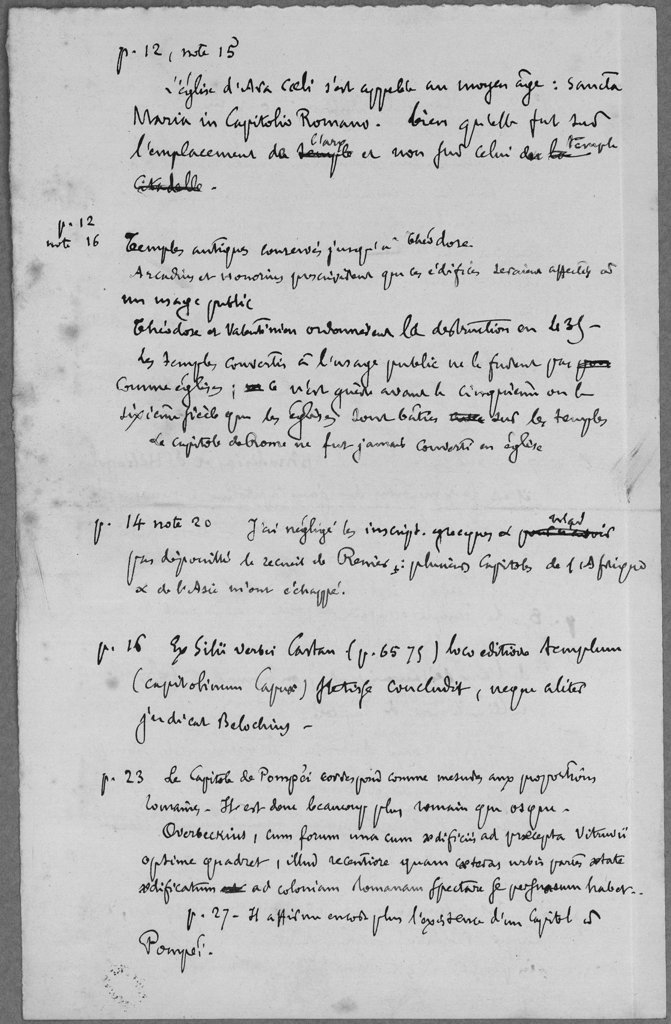 p. 12, note 15
L'église d'Ara Cœli s'est appelée au moyen âge : Sancta
Maria in Capitolio Romano. bien qu'elle fut sur
l'emplacement de temple l'arx et non sur celui de la temple
citadelle.
p. 12
note 16
Temples antiques conservés jusqu'à Théodore.
Arcadius et Honorius prescrivirent que ces édifices seraient affectés à
un usage public
Théodore et Valentinien ordonnèrent la destruction en
Les temples convertis à l'usage public ne le furent pas
comme églises ; ce n'est guère avant le cinquième ou le
sixième siècle que les églises sont bâties sur les temples
Le capitole de Rome ne fut jamais converti en église
p. 14 note 20 J'ai négligé les inscript. grecques &
pas dépouillé le recueil de Renier : plusieurs Capitoles de l'Afrique
& de l'Asie m'ont échappé.
p. 16 Ex Silii verbis Castan (p. 65 75) loco editiore templum
(capitolinum Capuæ) stetisse concludit, neque aliter
judicat Belochius -
p. 23 Le Capitole de Pompéi correspond comme mesures aux proportions
romaines - Il est donc beaucoup plus romain que osque.
Overbeckius, cum forum una cum ædificiis ad præcepta Vitruvii
optime quadret, illud recentiore quam cæteras urbis partes ætate
ædificatum ad coloniam romanam spectare se persuasum habet.
p. 27 - Il affirme encore plus l'existence d'un Capitol à
Pompéi.